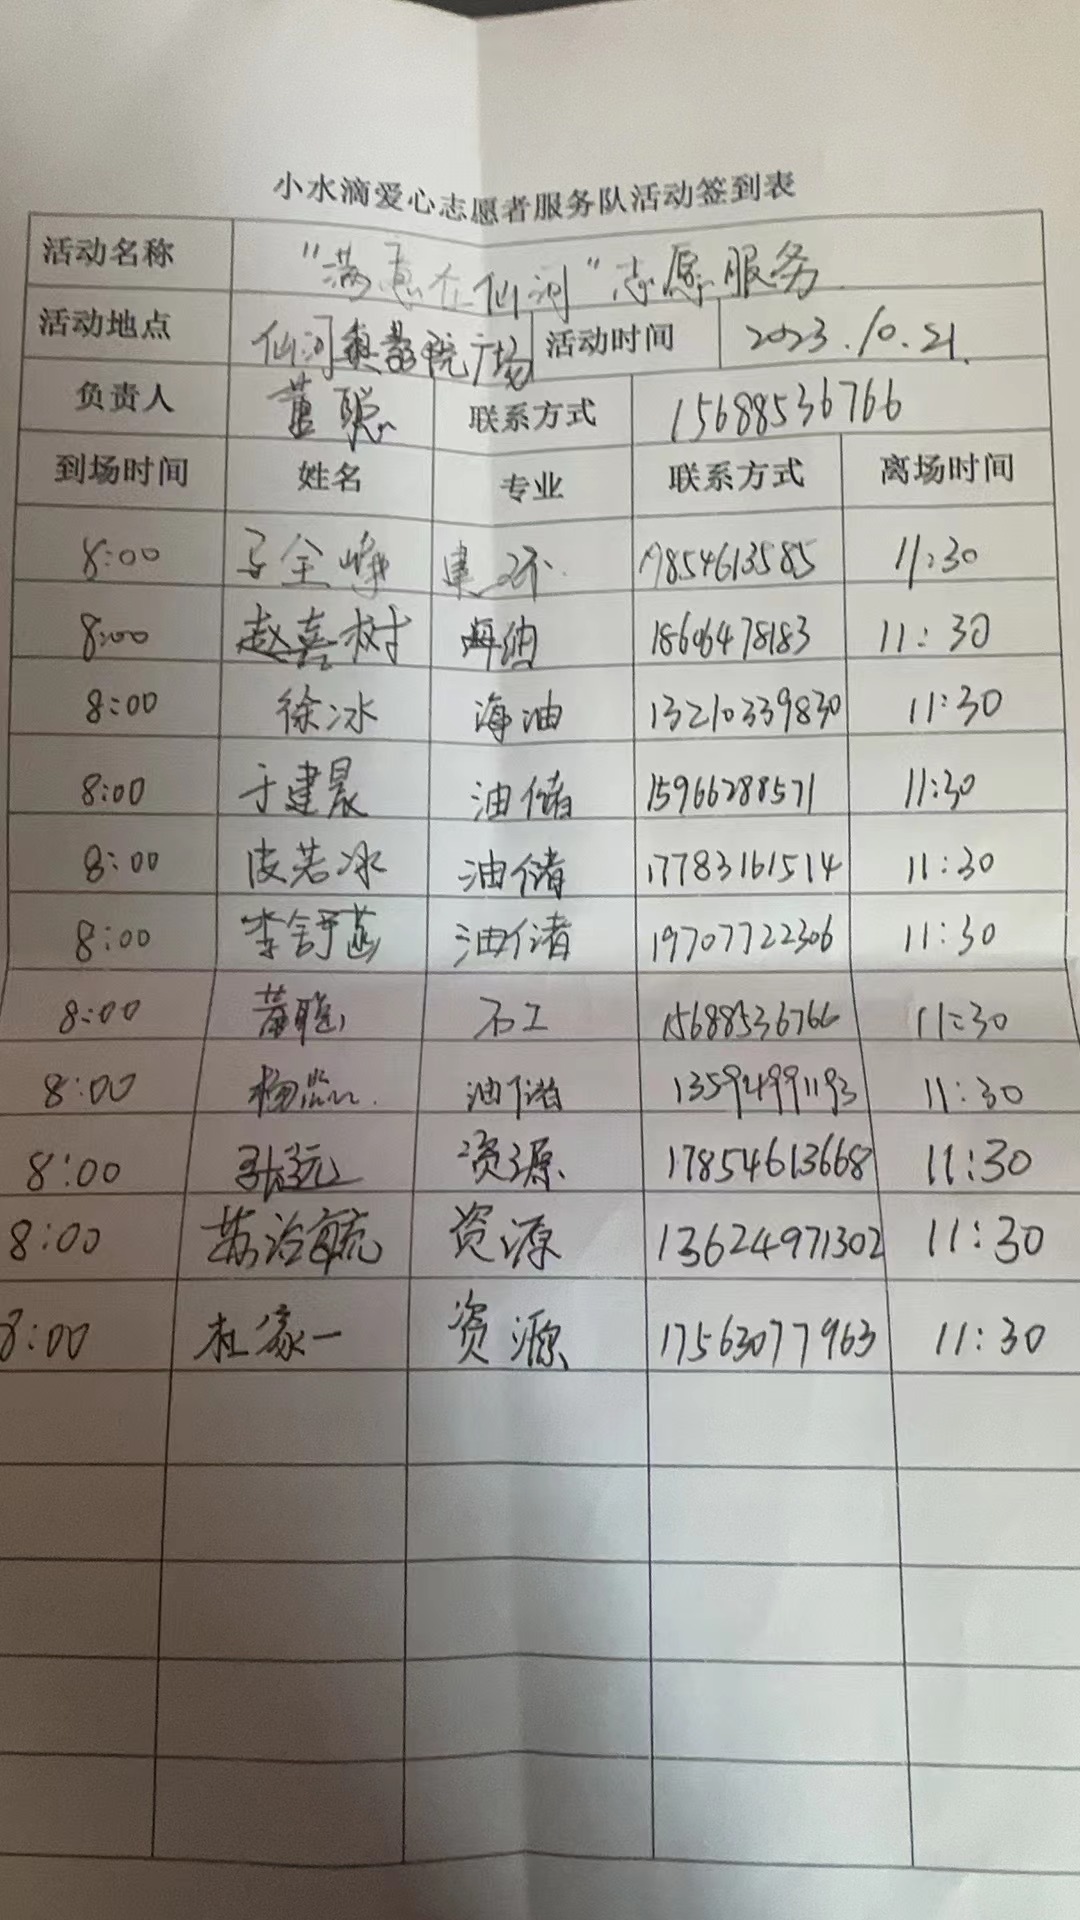 小水滴爱心志愿者服务队活动签到表
活动名称 "满意在仙河"志愿服务
活动地点 仙河影院广场 活动时间 2023.10.21.
负责人 董聪 联系方式 15688536766
到场时间 姓名 专业 联系方式 离场时间
8:00 马全峰 建环 17854613585 11:30
8:00 赵喜树 海油 18606478183 11:30
8:00 徐冰 海油 13210339830 11:30
8:00 于建晨 油储 15966288571 11:30
8:00 皮若冰 油储 17783161514 11:30
8:00 李舒 油储 19707722306 11:30
8:00 董聪 石工 15688536766 11:30
8:00 杨 油储 13594991193 11:30
8:00 张远 资源 17854613668 11:30
8:00 苏治毓 资源 13624971302 11:30
8:00 杜家一 资源 17563077963 11:30